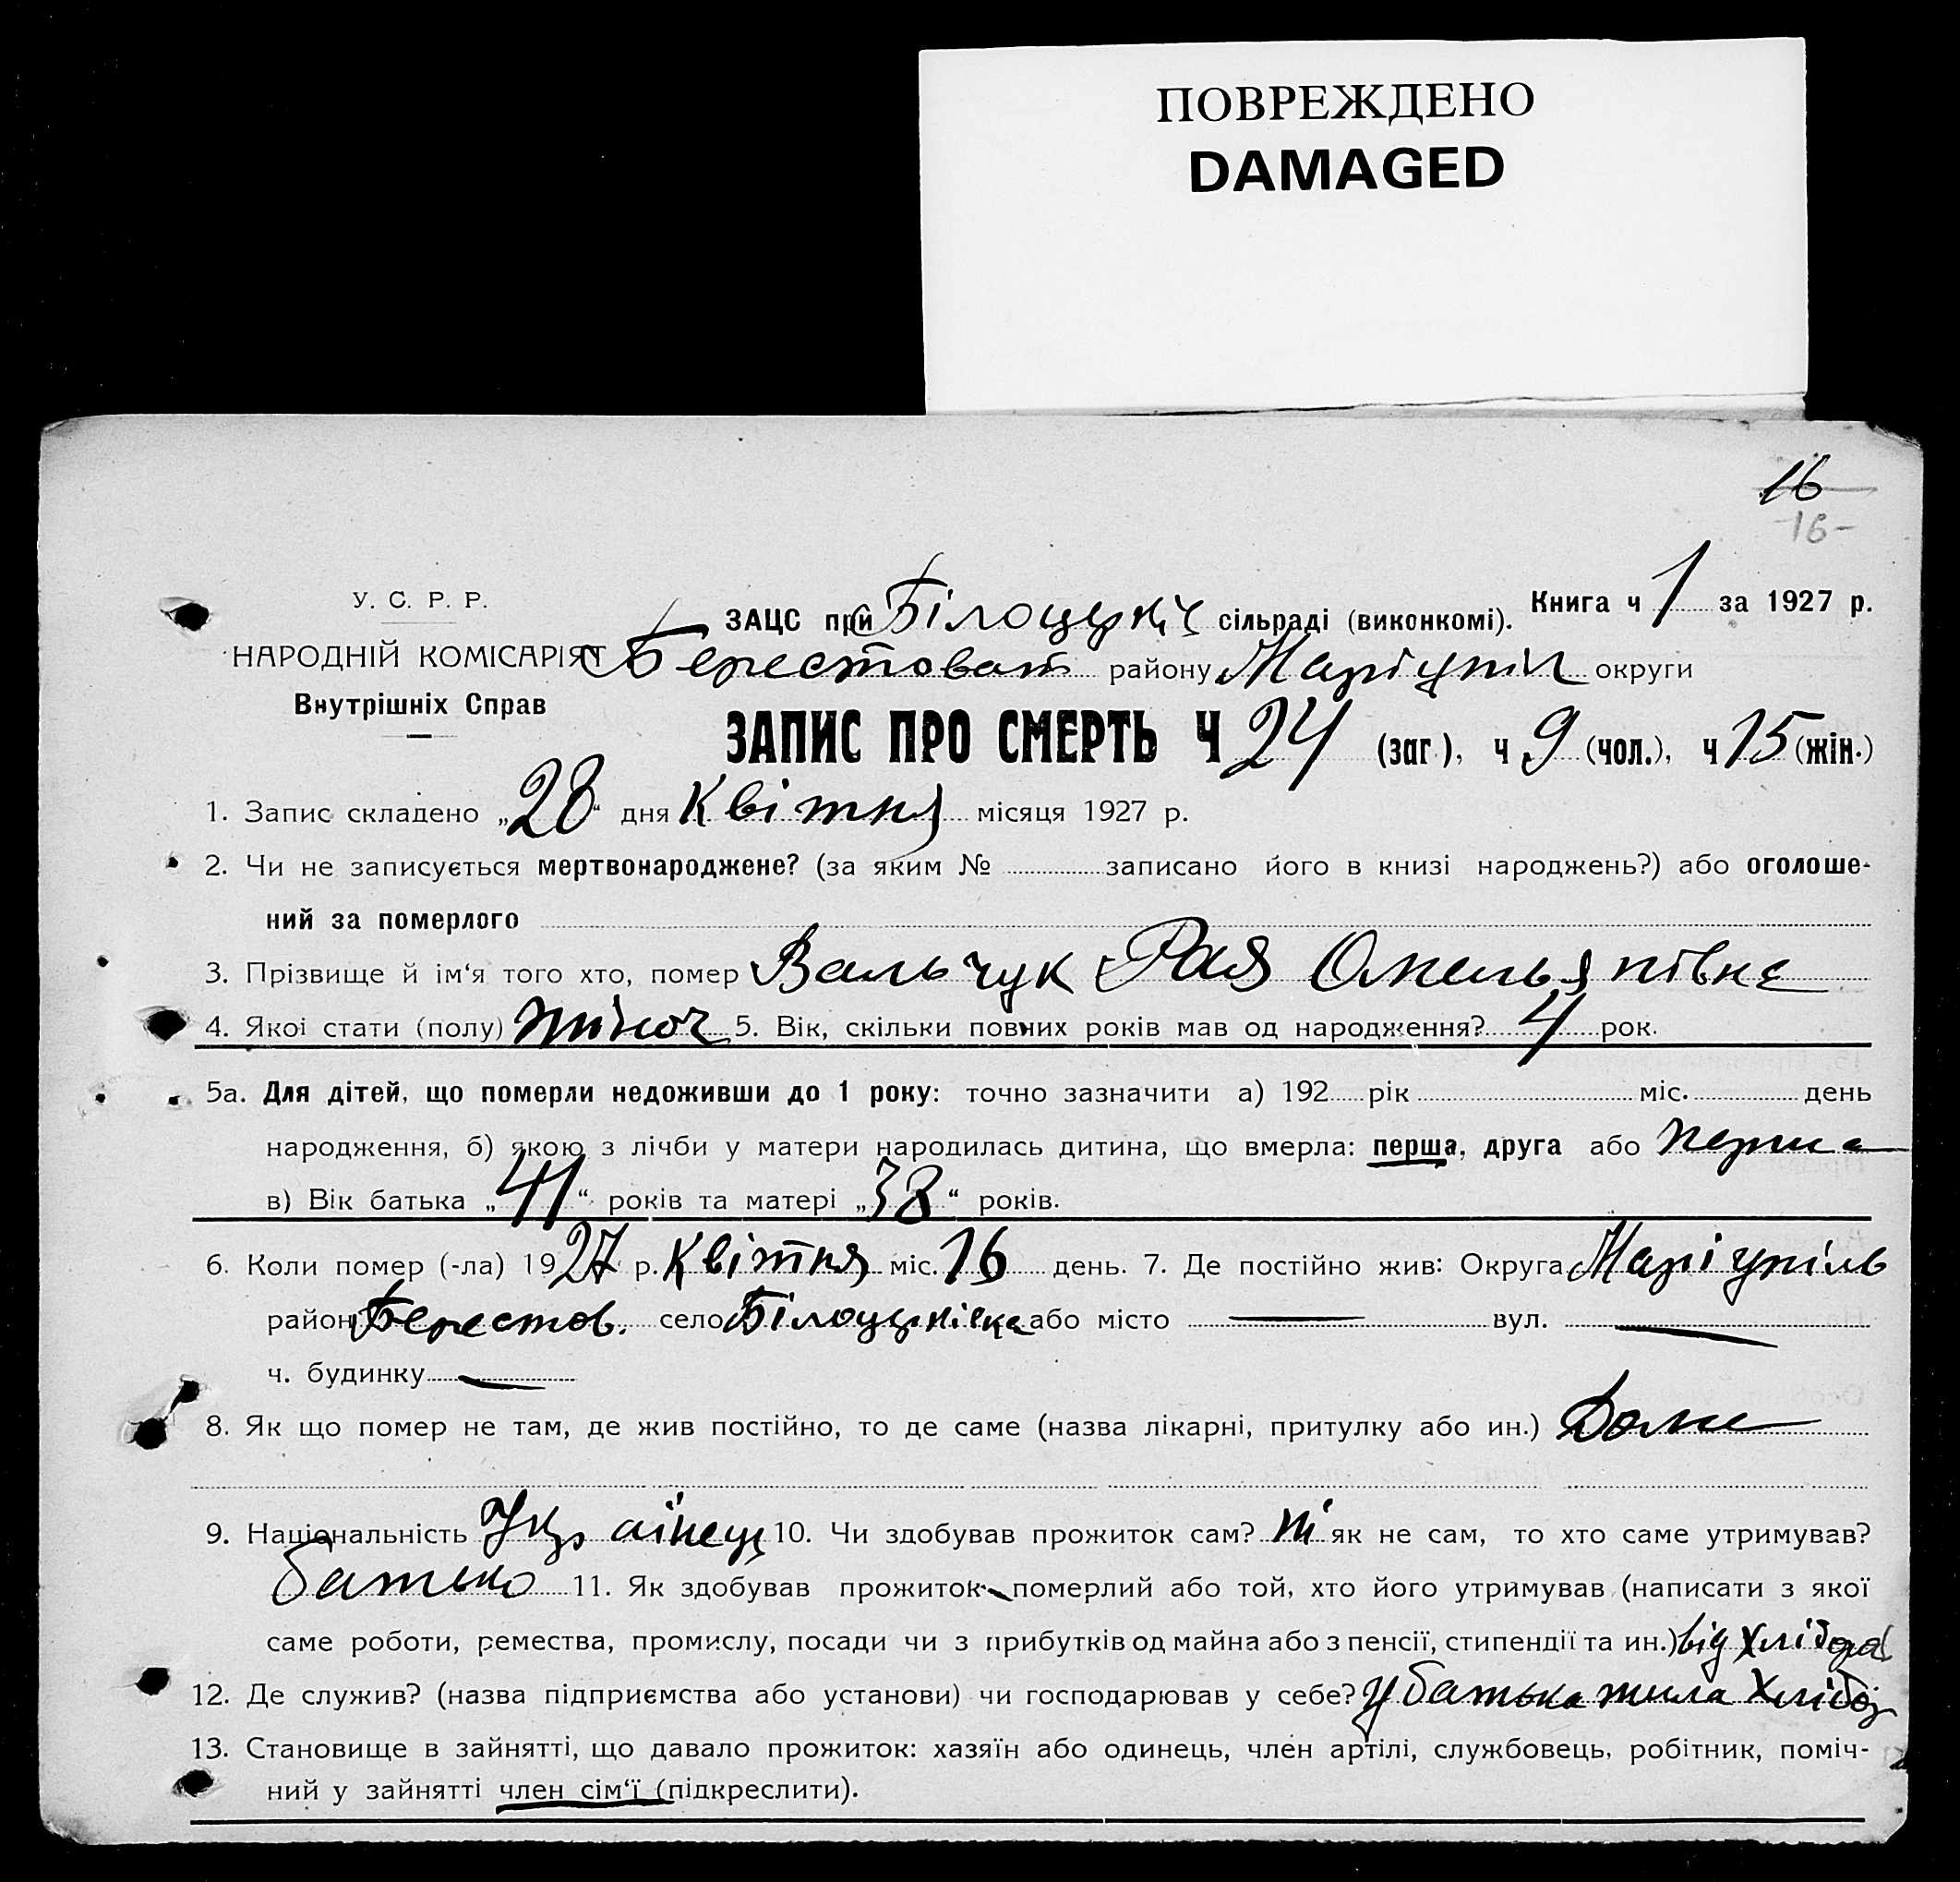 ПОВРЕЖДЕНО
DAMAGED
16
-16-
У. С. Р. Р.
НАРОДНІЙ КОМІСАРІЯТ
Внутрішніх Справ
ЗАЦС при Білоцерків сільраді (виконкомі). Книга ч 1 за 1927 р.
Берестоват району Маріупіл округи
ЗАПИС ПРО СМЕРТЬ Ч 24 (заг.), ч 9 (чол.), ч 15 (жін.)
1. Запис складено „28“ дня Квітня місяця 1927 р.
2. Чи не записується мертвонароджене? (за яким № записано його в книзі народжень?) або оголоше-
ний за померлого
3. Прізвище й ім‘я того хто, помер Вальчук Рая Омельянівна
4. Якої стати (полу) жіноч 5. Вік, скільки повних років мав од народження? 4 рок.
5а. Для дітей, що померли недоживши до 1 року: точно зазначити а) 192 рік міс. день
народження, б) якою з лічби у матери народилась дитина, що вмерла: перша, друга або перша
в) Вік батька „41“ років та матері „38“ років.
6. Коли помер (-ла) 1927 р. Квітня міс. 16 день. 7. Де постійно жив: Округа Маріупіль
район Берестов. село Білоцерківка або місто — вул. —
ч. будинку —
8. Як що помер не там, де жив постійно, то де саме (назва лікарні, притулку або ин.) Доме
9. Національність Українец 10. Чи здобував прожиток сам? ні як не сам, то хто саме утримував?
батько 11. Як здобував прожиток померлий або той, хто його утримував (написати з якої
саме роботи, ремества, промислу, посади чи з прибутків од майна або з пенсії, стипендії та ин.) від
12. Де служив? (назва підприємства або установи) чи господарював у себе? у батька жила Хлібор
13. Становище в зайнятті, що давало прожиток: хазяїн або одинець, член артілі, службовець, робітник, поміч-
ний у зайнятті член сім‘ї (підкреслити).